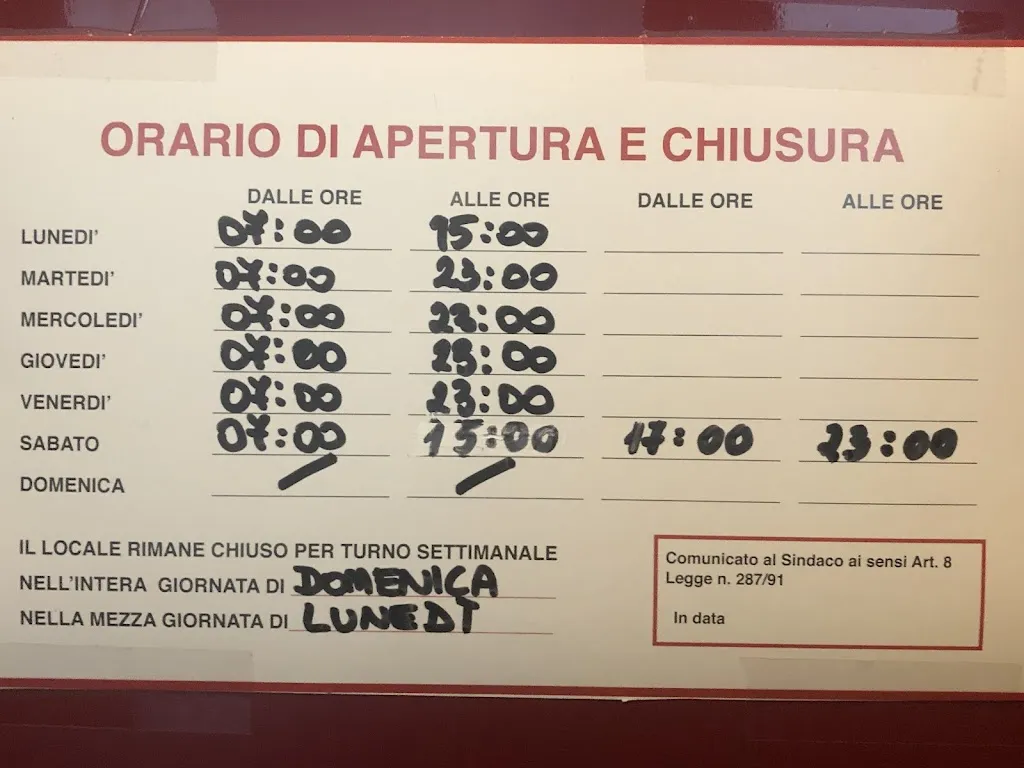 ORARIO DI APERTURA E CHIUSURA
DALLE ORE ALLE ORE DALLE ORE ALLE ORE
LUNEDI' 07:00 15:00
MARTEDI' 07:00 23:00
MERCOLEDI' 07:00 23:00
GIOVEDI' 07:00 23:00
VENERDI' 07:00 23:00
SABATO 07:00 15:00 17:00 23:00
DOMENICA / /
IL LOCALE RIMANE CHIUSO PER TURNO SETTIMANALE
NELL'INTERA GIORNATA DI DOMENICA
NELLA MEZZA GIORNATA DI LUNEDÌ
Comunicato al Sindaco ai sensi Art. 8
Legge n. 287/91
In data